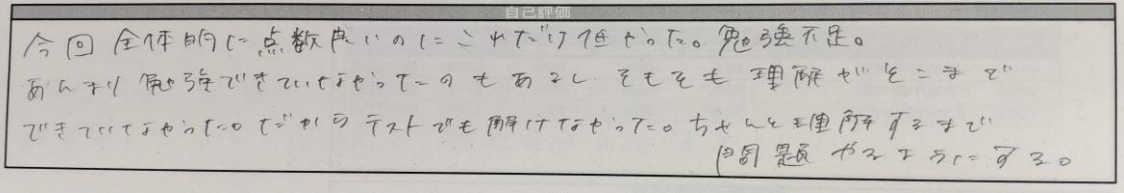 自己評価
今回全体的に点数良いのにこれだけ低かった。勉強不足。
あんまり勉強できていなかったのもあるし そもそも理解がそこまで
できていなかった。だからテストでも解けなかった。ちゃんと理解するまで
問題やるようにする。